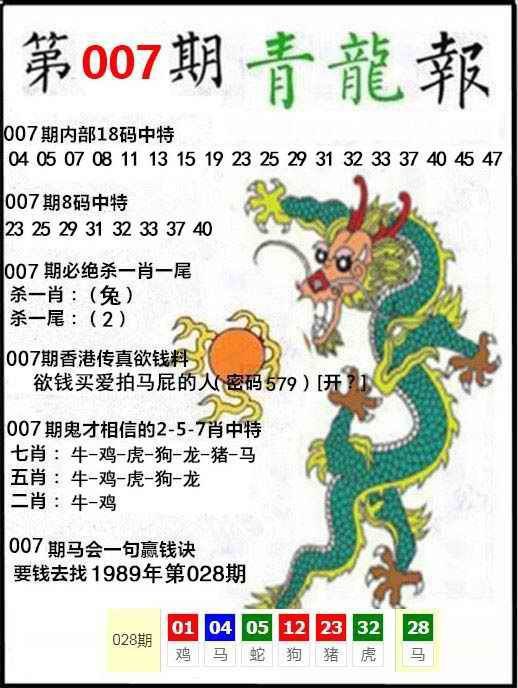 第007期青龍報
007期内部18码中特
04 05 07 08 11 13 15 19 23 25 29 31 32 33 37 40 45 47
007期8码中特
23 25 29 31 32 33 37 40
007 期必绝杀一肖一尾
杀一肖：（兔）
杀一尾：（2）
007期香港传真欲钱料
欲钱买爱拍马屁的人（密码579）[开？]
007期鬼才相信的2-5-7肖中特
七肖：牛-鸡-虎-狗-龙-猪-马
五肖：牛-鸡-虎-狗-龙
二肖：牛-鸡
007期马会一句赢钱诀
要钱去找1989年第028期
028期 01 04 05 12 23 32 28
鸡 马 蛇 狗 猪 虎 马